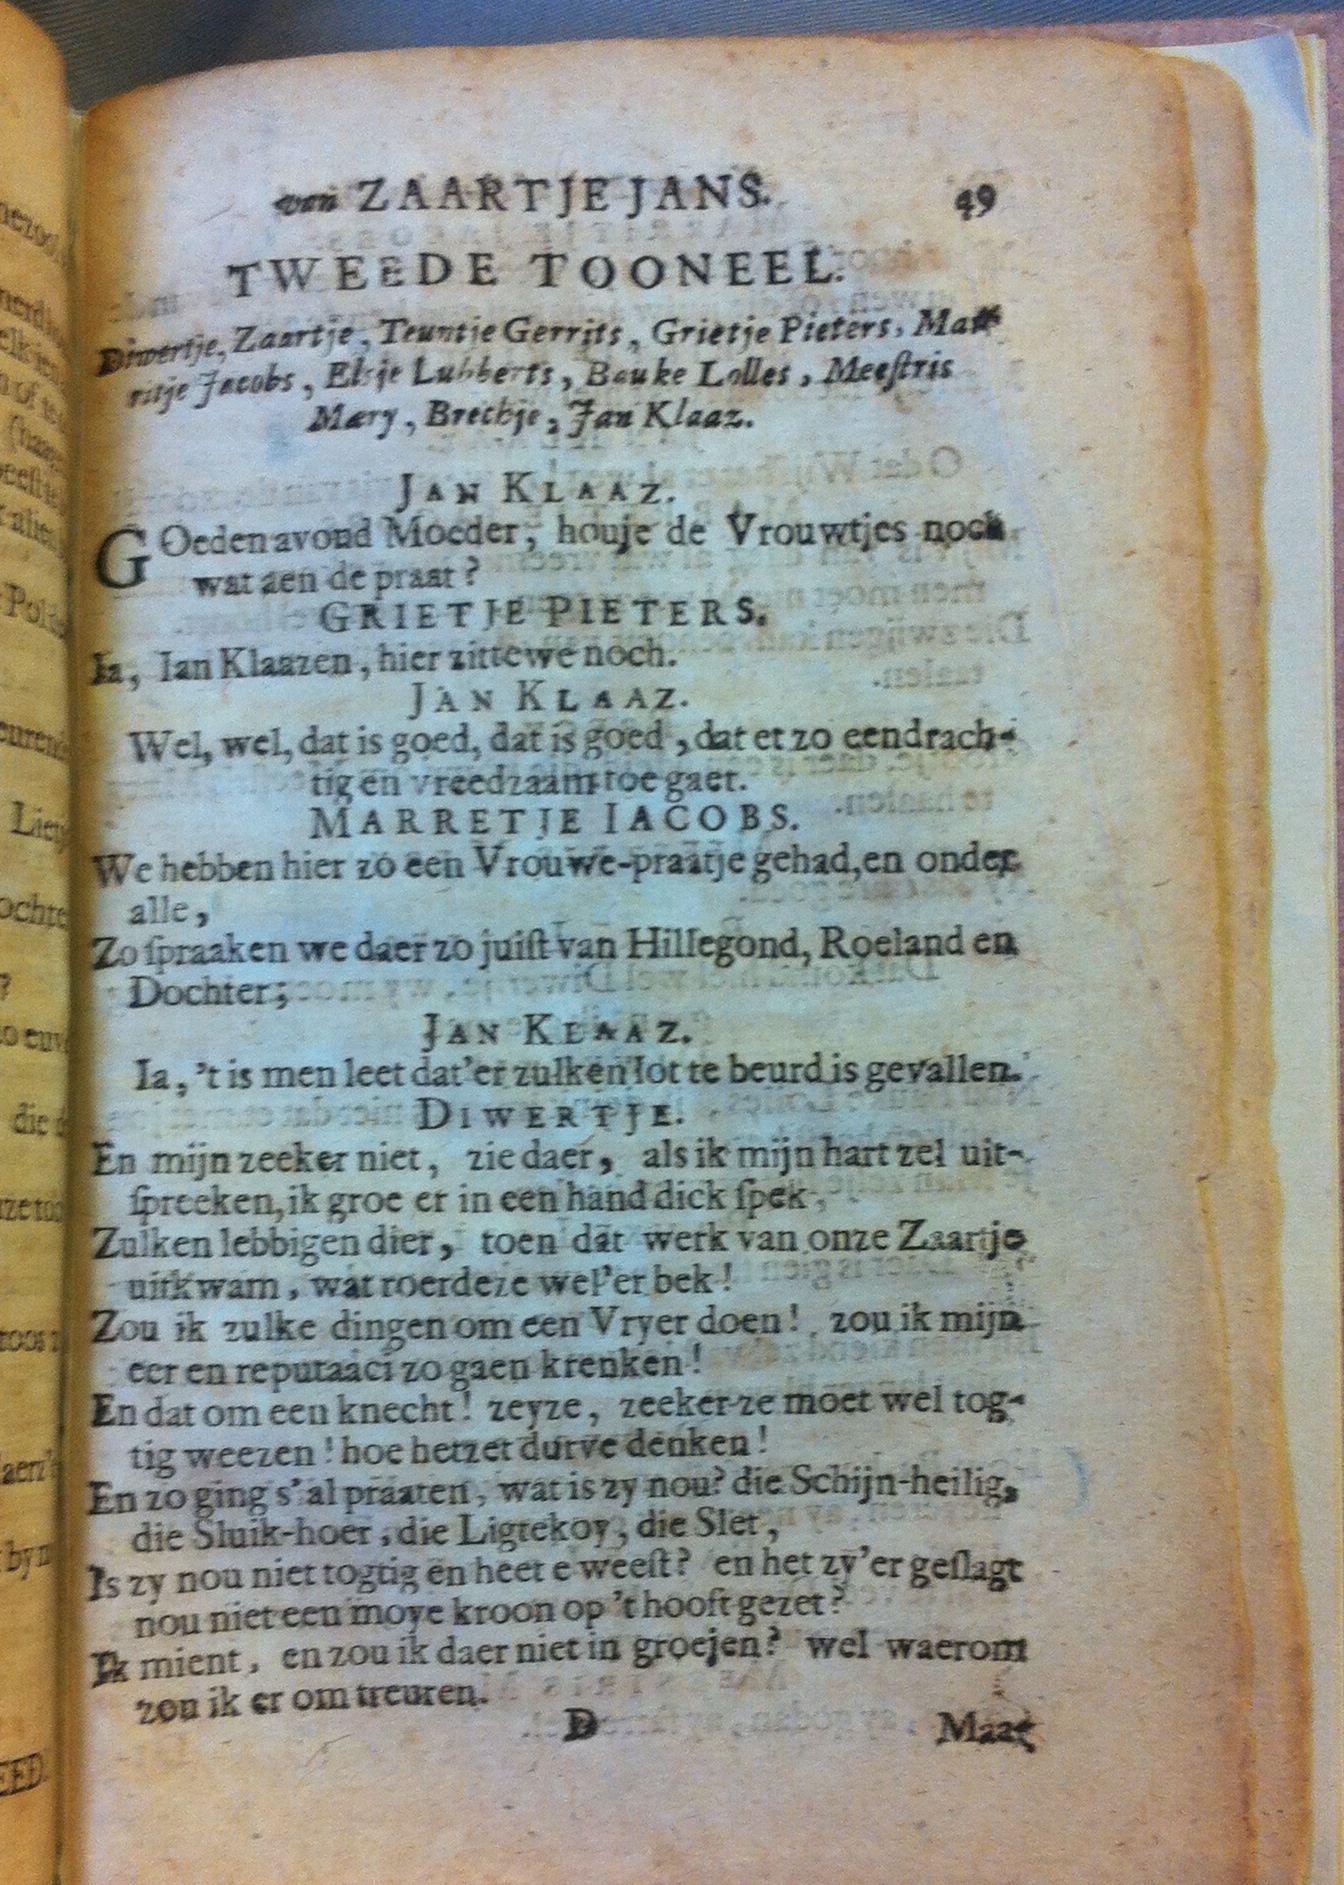 van ZAARTJE JANS. 49
TWEEDE TOONEEL.
Diwertje, Zaartje, Teuntje Gerrits, Grietje Pieters, Mar-
ritje Jacobs, Elsje Lubberts, Bauke Lolles, Meeſtris
Mary, Brechje, Jan Klaaz.
JAN KLAAZ.
GOeden avond Moeder, houje de Vrouwtjes noch
wat aen de praat?
GRIETJE PIETERS.
Ia, Ian Klaazen, hier zittewe noch.
JAN KLAAZ.
Wel, wel, dat is goed, dat is goed, dat et zo eendrach-
tig en vreedzaam toe gaet.
MARRETJE IACOBS.
We hebben hier zo een Vrouwe-praatje gehad, en onder
alle,
Zo ſpraaken we daer zo juiſt van Hillegond, Roeland en
Dochter;
JAN KLAAZ.
Ia, 't is men leet dat'er zulken lot te beurd is gevallen.
DIWERTJE.
En mijn zeeker niet, zie daer, als ik mijn hart zel uit-
ſpreeken, ik groe er in een hand dick ſpek,
Zulken lebbigen dier, toen dat werk van onze Zaartje
uitkwam, wat roerdeze wel'er bek!
Zou ik zulke dingen om een Vryer doen! zou ik mijn
eer en reputaaci zo gaen krenken!
En dat om een knecht! zeyze, zeeker ze moet wel tog-
tig weezen! hoe hetzet durve denken!
En zo ging s'al praaten, wat is zy nou? die Schijn-heilig,
die Sluik-hoer, die Ligtekoy, die Slet,
Is zy nou niet togtig en heet e weeſt? en het zy'er geſlagt
nou niet een moye kroon op 't hooft gezet?
Ik mient, en zou ik daer niet in groejen? wel waerom
zou ik er om treuren.
D Maar